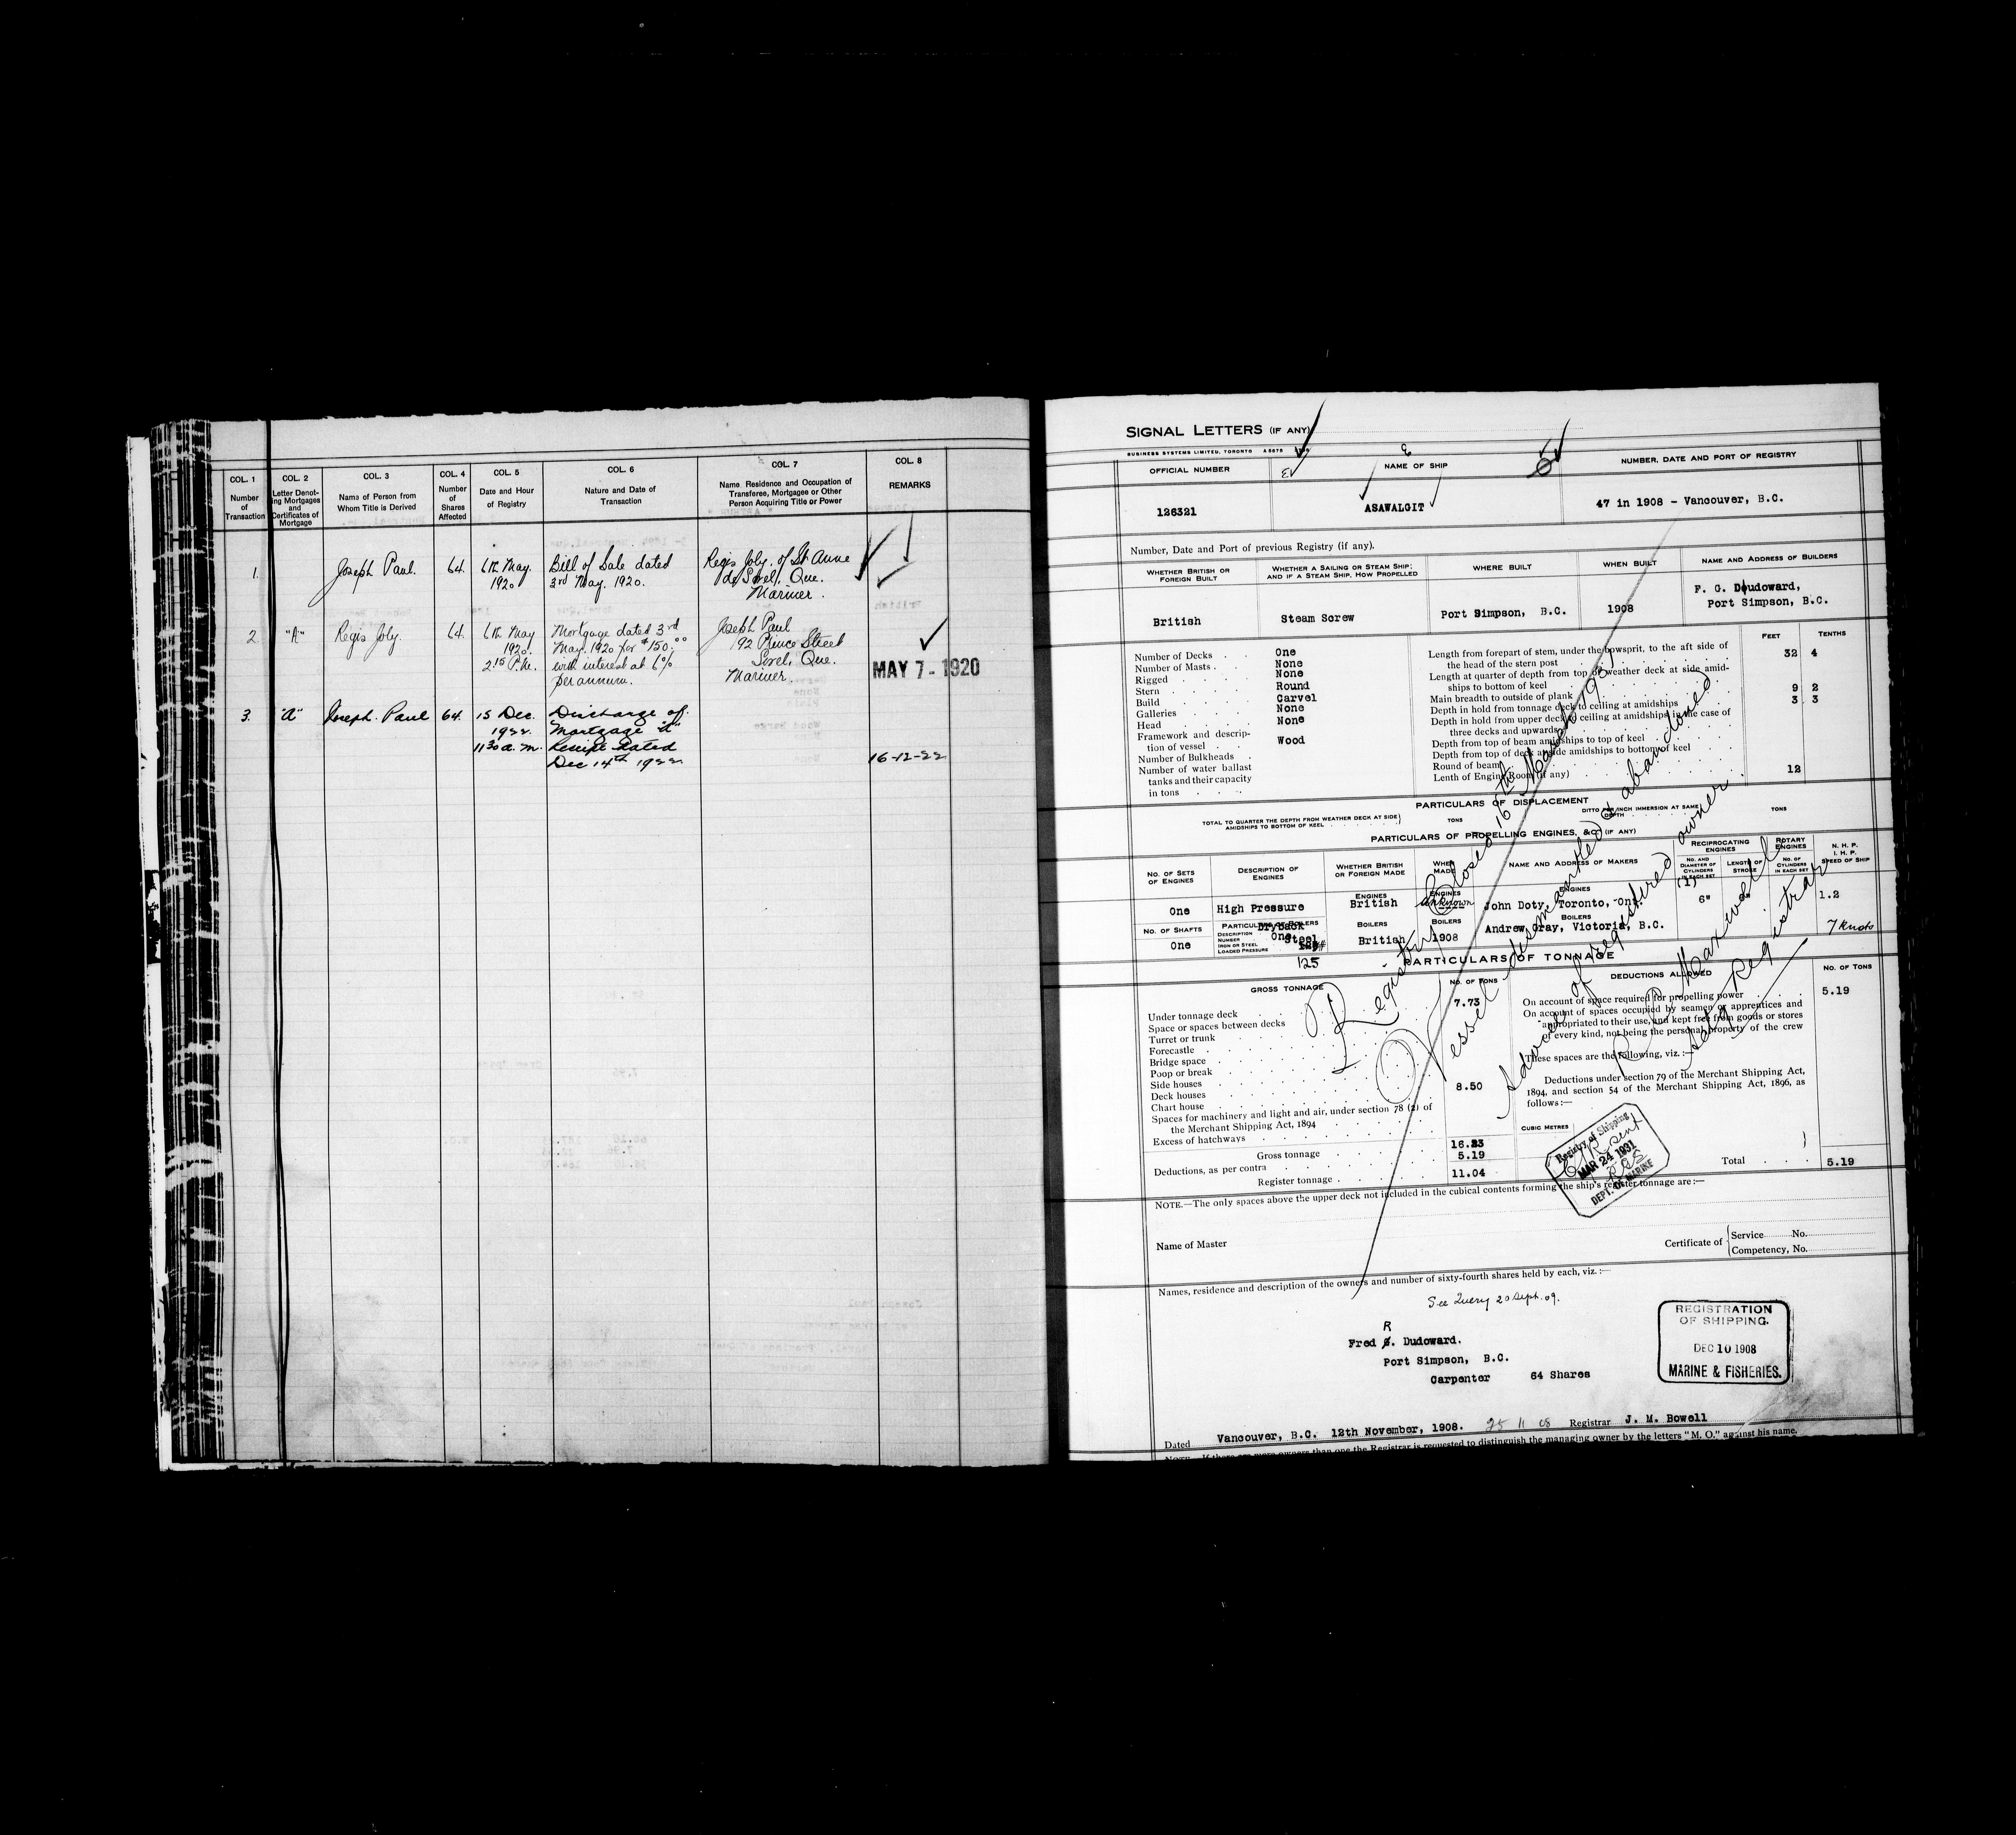 COL. 1
Number
of
Transaction
COL. 2
Letter Denot-
ing Mortgages
and
Certificates of
Mortgage
COL. 3
Name of Person from
Whom Title is Derived
COL. 4
Number
of
Shares
Affected
COL. 5
Date and Hour
of Registry
COL. 6
Nature and Date of
Transaction
COL. 7
Name Residence and Occupation of
Transferee, Mortgagee or Other
Person Acquiring Title or Power
COL. 8
REMARKS
1. Joseph Paul. 64. 6th May. Bill of Sale dated Regis Joly. of St Anne
1920 3rd May. 1920. de Sorel, Que.
Mariner.
2. "A" Regis Joly. 64. 6th May Mortgage dated 3rd Joseph Paul
1920. May. 1920 for $150.00 192 Prince Street
2.15 P.M. with interest at 6% Sorel, Que.
per annum. Mariner. MAY 7 - 1920
3. "A" Joseph Paul 64. 15 Dec. Discharge of
1922. Mortgage "A"
11.30 a.m. Receipt dated
Dec 14th 1922 16-12-22
SIGNAL LETTERS (IF ANY)
BUSINESS SYSTEMS LIMITED, TORONTO
OFFICIAL NUMBER NAME OF SHIP NUMBER, DATE AND PORT OF REGISTRY
126321 ASAWALGIT 47 in 1908 - Vancouver, B.C.
Number, Date and Port of previous Registry (if any).
WHETHER BRITISH OR
FOREIGN BUILT
WHETHER A SAILING OR STEAM SHIP;
AND IF A STEAM SHIP, HOW PROPELLED
WHERE BUILT
WHEN BUILT
NAME AND ADDRESS OF BUILDERS
British Steam Screw Port Simpson, B.C. 1908
F. G. Doudoward,
Port Simpson, B.C.
FEET TENTHS
Number of Decks One
Number of Masts None
Rigged None
Stern Round
Build Carvel
Galleries None
Head None
Framework and descrip-
tion of vessel Wood
Number of Bulkheads
Number of water ballast
tanks and their capacity
in tons
Length from forepart of stem, under the bowsprit, to the aft side of
the head of the stern post 32 4
Length at quarter of depth from top of weather deck at side amid-
ships to bottom of keel
Main breadth to outside of plank 9 2
Depth in hold from tonnage deck to ceiling at amidships 3 3
Depth in hold from upper deck to ceiling at amidships in the case of
three decks and upwards
Depth from top of beam amidships to top of keel
Depth from top of deck at side amidships to bottom of keel
Round of beam
Lenth of Engine Room (if any) 12
PARTICULARS OF DISPLACEMENT
TOTAL TO QUARTER THE DEPTH FROM WEATHER DECK AT SIDE
AMIDSHIPS TO BOTTOM OF KEEL
TONS
DITTO PER INCH IMMERSION AT SAME
DEPTH
TONS
PARTICULARS OF PROPELLING ENGINES, &C. (IF ANY)
NO. OF SETS
OF ENGINES
DESCRIPTION OF
ENGINES
WHETHER BRITISH
OR FOREIGN MADE
WHEN
MADE
NAME AND ADDRESS OF MAKERS
RECIPROCATING
ENGINES
NO. AND
DIAMETER OF
CYLINDERS
IN EACH SET
LENGTH OF
STROKE
ROTARY
ENGINES
NO. OF
CYLINDERS
IN EACH SET
N. H. P.
I. H. P.
SPEED OF SHIP
ENGINES ENGINES ENGINES (1)
One High Pressure British Unknown John Doty, Toronto, Ont. 6" 6" 1.2
NO. OF SHAFTS PARTICULARS OF BOILERS BOILERS BOILERS BOILERS
DESCRIPTION Dryback
NUMBER One
IRON OR STEEL Steel
LOADED PRESSURE
One British 1908 Andrew Gray, Victoria, B.C. 7 knots
125
PARTICULARS OF TONNAGE
GROSS TONNAGE NO. OF TONS DEDUCTIONS ALLOWED NO. OF TONS
Under tonnage deck 7.73
Space or spaces between decks
Turret or trunk
Forecastle
Bridge space
Poop or break
Side houses
Deck houses 8.50
Chart house
Spaces for machinery and light and air, under section 78 (2) of
the Merchant Shipping Act, 1894
Excess of hatchways
Gross tonnage 16.23
Deductions, as per contra 5.19
Register tonnage 11.04
On account of space required for propelling power 5.19
On account of spaces occupied by seamen or apprentices and
appropriated to their use, and kept free from goods or stores
of every kind, not being the personal property of the crew
These spaces are the following, viz.:—
Deductions under section 79 of the Merchant Shipping Act,
1894, and section 54 of the Merchant Shipping Act, 1896, as
follows:—
CUBIC METRES
Total 5.19
Registry Closed 16th March 1931
Vessel dismantled & abandoned
Advice of registered owner.
Maxwell
Actg Registrar
Registry of Shipping
MAR 24 1931
DEPT. OF MARINE
NOTE.—The only spaces above the upper deck not included in the cubical contents forming the ship's register tonnage are:—
Name of Master
Certificate of Service No.
Competency, No.
Names, residence and description of the owners and number of sixty-fourth shares held by each, viz.:—
See Query 20 Sept. 09.
R
Fred G. Dudoward.
Port Simpson, B.C.
Carpenter 64 Shares
REGISTRATION
OF SHIPPING.
DEC 10 1908
MARINE & FISHERIES.
Dated Vancouver, B.C. 12th November, 1908. 25 11 08 Registrar J. M. Bowell
NOTE.—If there are more owners than one the Registrar is requested to distinguish the managing owner by the letters "M. O." against his name.